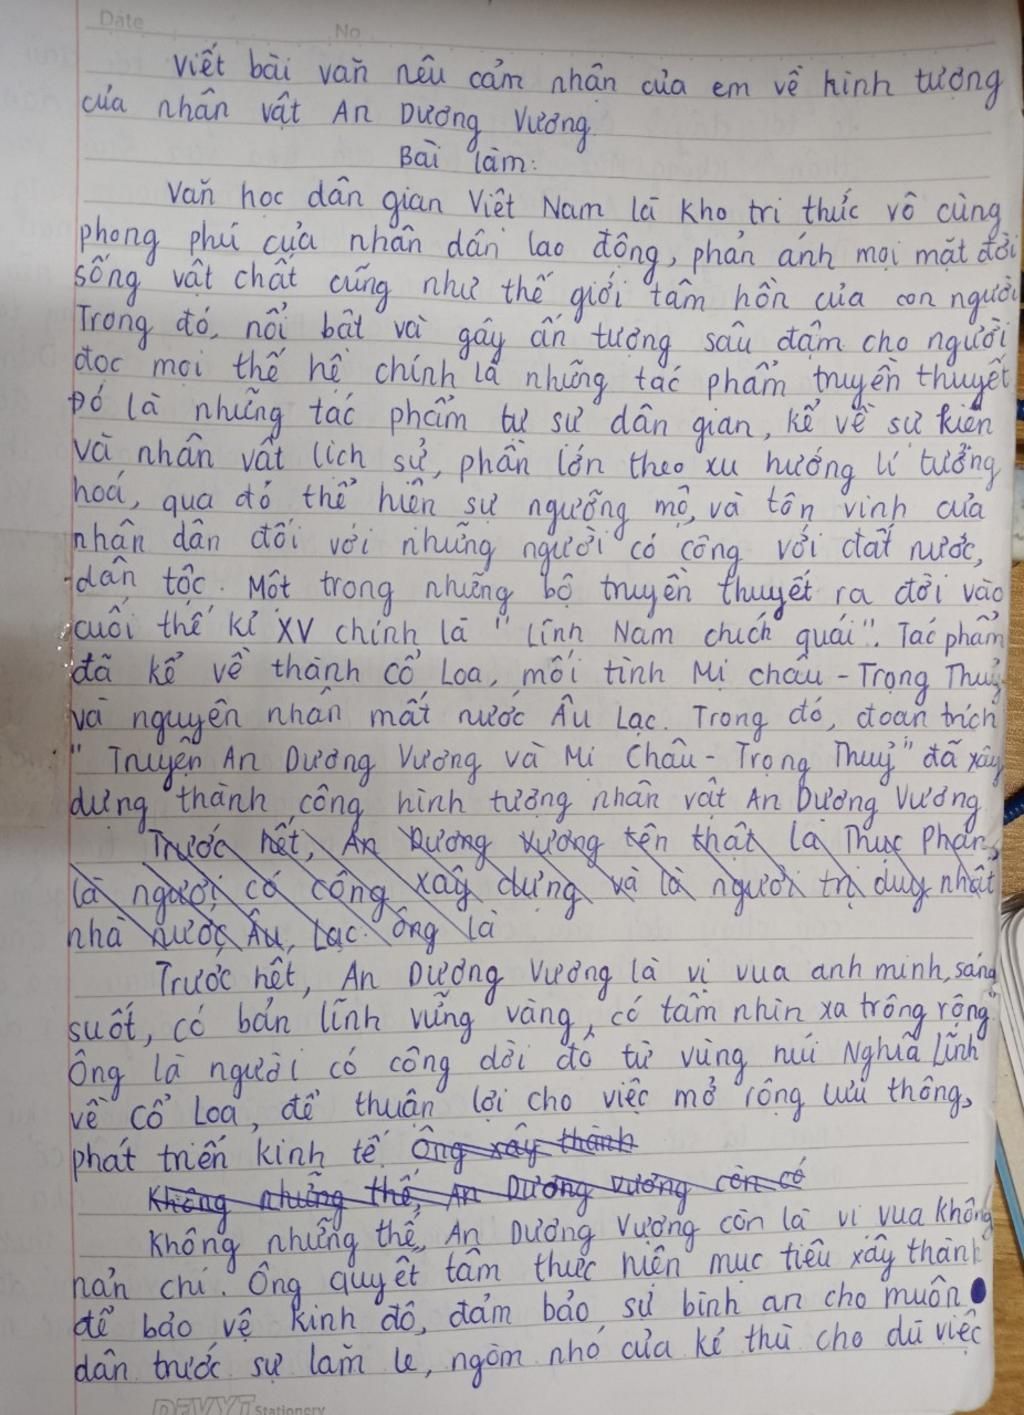 Date No
Viết bài văn nêu cảm nhận của em về hình tượng
của nhân vật An Dương Vương.
Bài làm:
Văn học dân gian Việt Nam là kho tri thức vô cùng
phong phú của nhân dân lao động, phản ánh mọi mặt đời
sống vật chất cũng như thế giới tâm hồn của con người
Trong đó, nổi bật và gây ấn tượng sâu đậm cho người
đọc mọi thế hệ chính là những tác phẩm truyền thuyết
Đó là những tác phẩm tự sự dân gian, kể về sự kiện
và nhân vật lịch sử, phần lớn theo xu hướng lí tưởng
hoá, qua đó thể hiện sự ngưỡng mộ, và tôn vinh của
nhân dân đối với những người có công với đất nước,
dân tộc. Một trong những bộ truyền thuyết ra đời vào
cuối thế kỉ XV chính là "Lĩnh Nam chích quái". Tác phẩm
đã kể về thành Cổ Loa, mối tình Mị Châu - Trọng Thuỷ
và nguyên nhân mất nước Âu Lạc. Trong đó, đoạn trích
"Truyện An Dương Vương và Mị Châu - Trọng Thuỷ" đã xây
dựng thành công hình tượng nhân vật An Dương Vương
Trước hết, An Dương Vương tên thật là Thục Phán,
là người có công xây dựng và là người trị duy nhất
nhà nước Âu Lạc. Ông là
Trước hết, An Dương Vương là vị vua anh minh, sáng
suốt, có bản lĩnh vững vàng, có tầm nhìn xa trông rộng
Ông là người có công dời đô từ vùng núi Nghĩa Lĩnh
về Cổ Loa, để thuận lợi cho việc mở rộng lưu thông,
phát triển kinh tế. Ông xây thành
Không những thế, An Dương Vương còn có
Không những thế, An Dương Vương còn là vị vua không
nản chí. Ông quyết tâm thực hiện mục tiêu xây thành
để bảo vệ kinh đô, đảm bảo sự bình an cho muôn
dân trước sự lăm le, ngòm nhó của kẻ thù cho dù việc
DEVYT Stationery